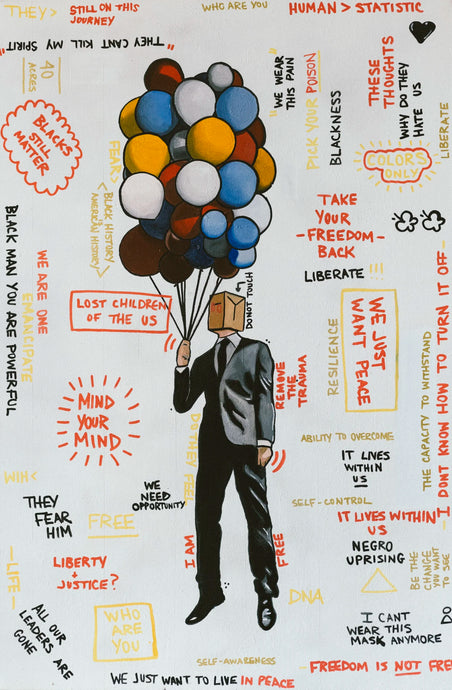 THEY>
STILL ON THIS
JOURNEY
WHO ARE YOU
HUMAN > STATISTIC
"THEY CANT KILL MY SPIRIT"
40
ACRES
"WE WEAR
THIS PAIN"
PICK YOUR POISON
BLACKNESS
THESE
THOUGHTS
WHY DO THEY
HATE US
LIBERATE
BLACKS
STILL
MATTER
FEAR>
<BLACK HISTORY
IS
AMERICAN HISTORY>
COLORS
ONLY
TAKE
YOUR
-FREEDOM-
BACK
LIBERATE !!!
BLACK MAN YOU ARE POWERFUL
WE ARE ONE
EMANCIPATE
LOST CHILDREN
OF THE US
DO NOT TOUCH
RESILIENCE
WE JUST
WANT PEACE
THE CAPACITY TO WITHSTAND
I DONT KNOW HOW TO TURN IT OFF -
REMOVE
THE
TRAUMA
MIND
YOUR
MIND
DO THEY FEEL
ABILITY TO OVERCOME
IT LIVES
WITHIN
US
WHY
WE
NEED
OPPORTUNITY
THEY
FEAR
HIM
FREE
SELF-CONTROL
IT LIVES WITHIN
US
NEGRO
UPRISING
I AM
FREE
LIBERTY
+
JUSTICE?
-LIFE-
BE THE
CHANGE
YOU WANT
TO SEE
DNA
ALL OUR
LEADERS ARE
GONE
WHO
ARE
YOU
I CANT
WEAR THIS
MASK ANYMORE
DO
SELF-AWARENESS
FREEDOM IS NOT FRE
WE JUST WANT TO LIVE IN PEACE